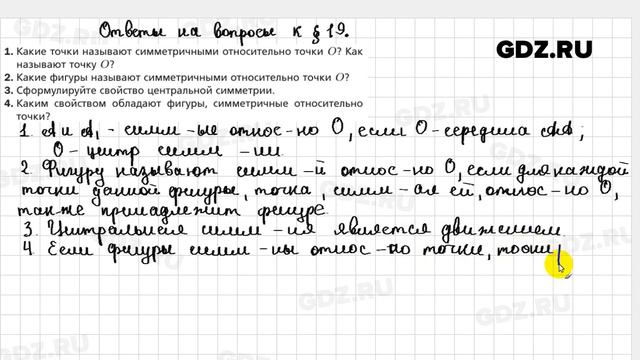 Ответы на вопросы к § 19.
GDZ.RU
1. Какие точки называют симметричными относительно точки O? Как
называют точку O?
2. Какие фигуры называют симметричными относительно точки O?
3. Сформулируйте свойство центральной симметрии.
4. Каким свойством обладают фигуры, симметричные относительно
точки?
1. A и A₁ - симм-ые относ-но O, если O - середина AA₁;
O - центр симм-ии.
2. Фигуру называют симм-й относ-но O, если для каждой
точки данной фигуры, точка, симм-ая ей, относ-но O,
также принадлежит фигуре
3. Центральная симм-ия является движением.
4. Если фигуры симм-ны относ-но точки, то они